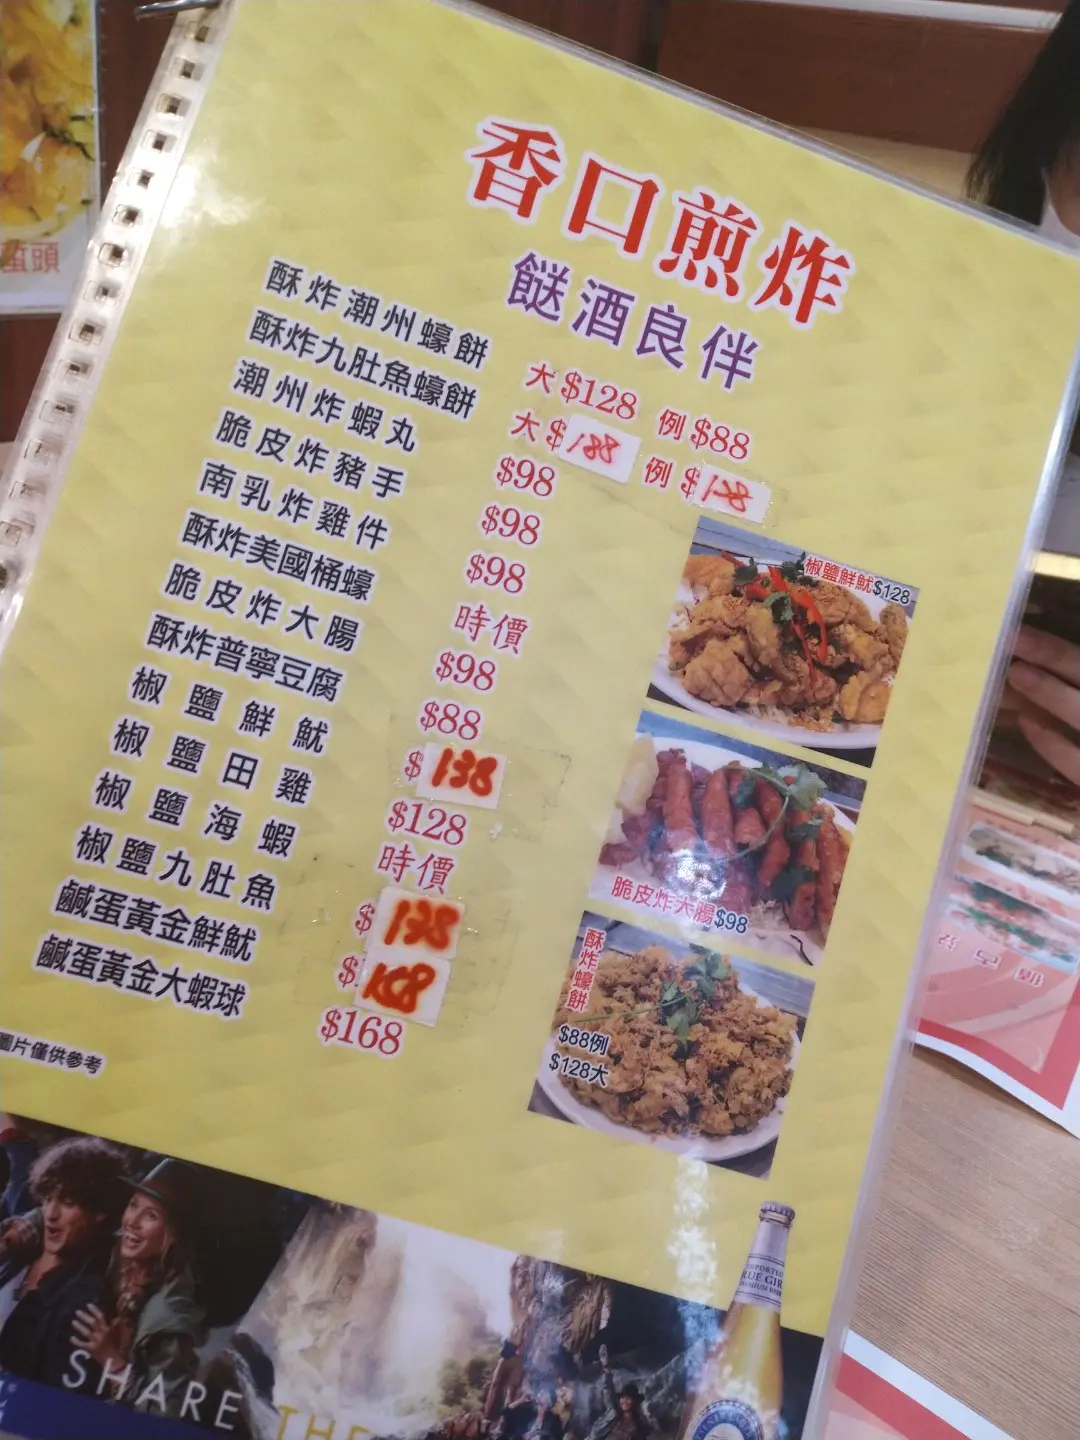 香口煎炸
餸酒良伴
酥炸潮州蠔餅 大$128 例$88
酥炸九肚魚蠔餅 大$188 例$138
潮州炸蝦丸 $98
脆皮炸豬手 $98
南乳炸雞件 $98
酥炸美國桶蠔 時價
脆皮炸大腸 $98
酥炸普寧豆腐 $88
椒鹽鮮魷 $138
椒鹽田雞 $128
椒鹽海蝦 時價
椒鹽九肚魚 $138
鹹蛋黃金鮮魷 $158
鹹蛋黃金大蝦球 $168
圖片僅供參考
椒鹽鮮魷$128
脆皮炸大腸$98
酥炸蠔餅
$88例
$128大
SHARE THE